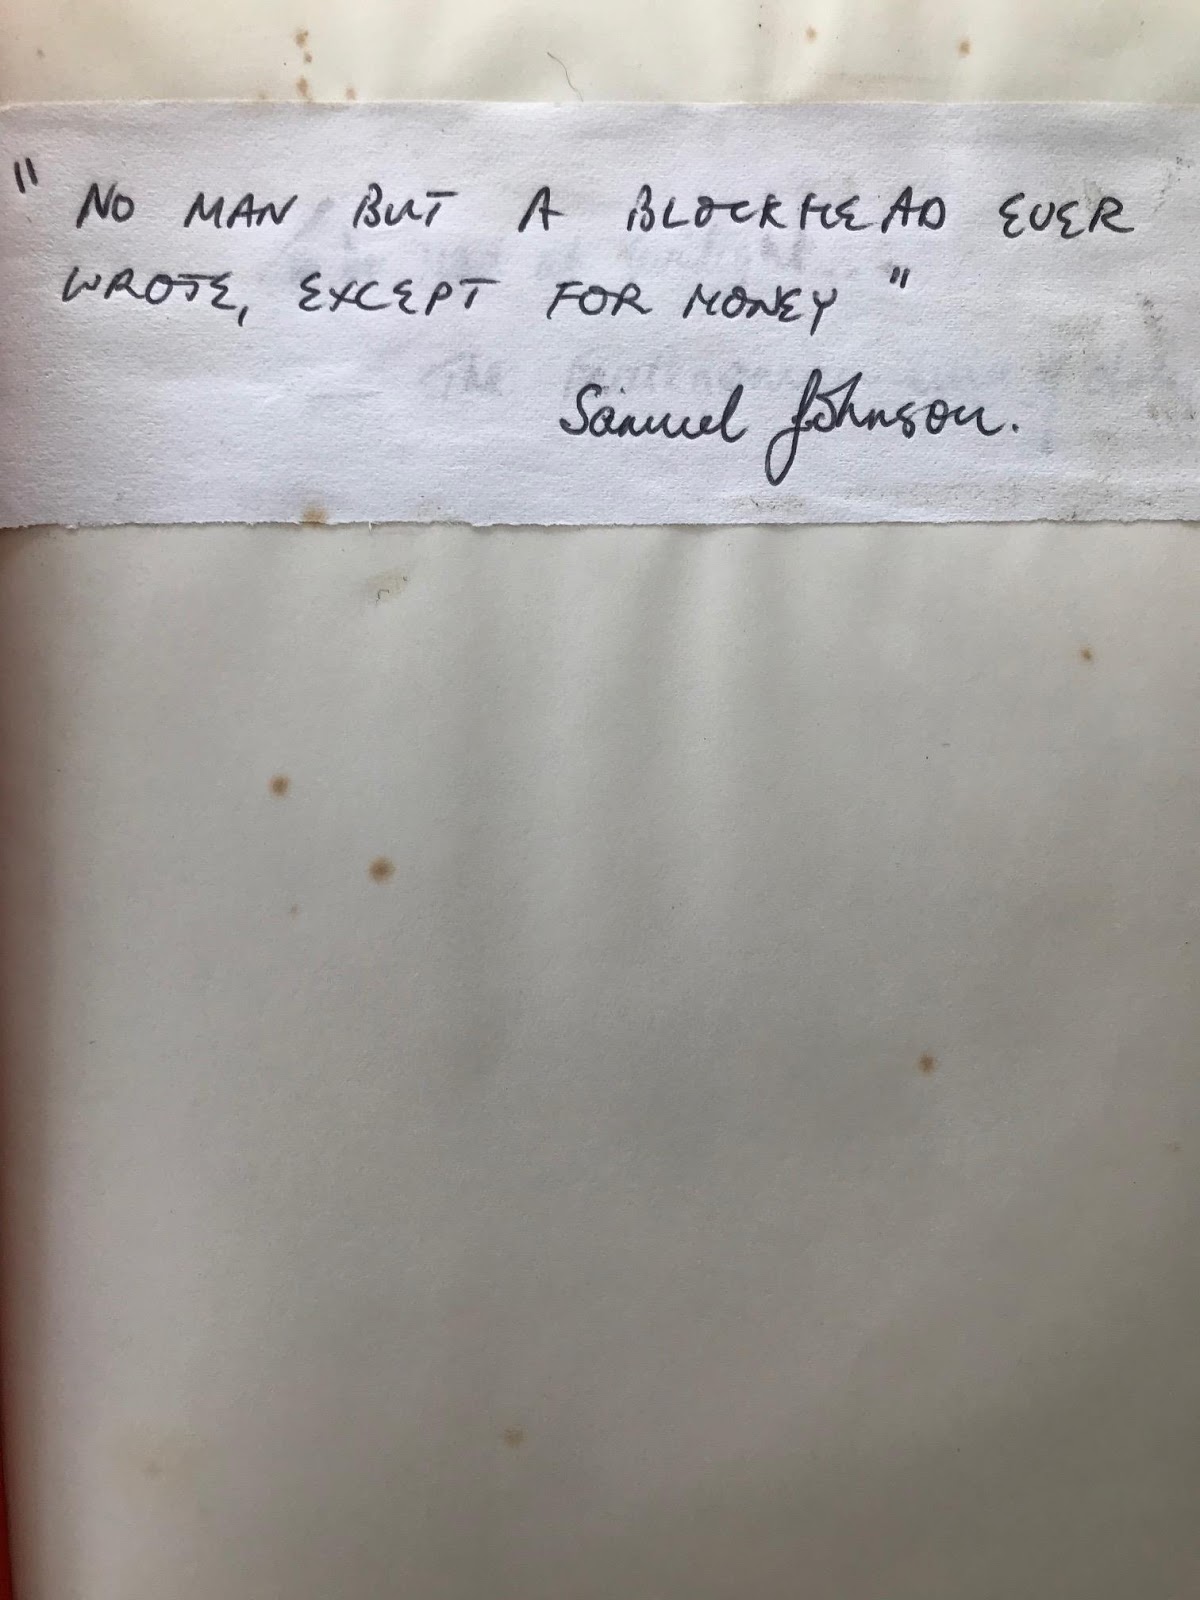 "NO MAN BUT A BLOCKHEAD EVER
WROTE, EXCEPT FOR MONEY"
Samuel Johnson.